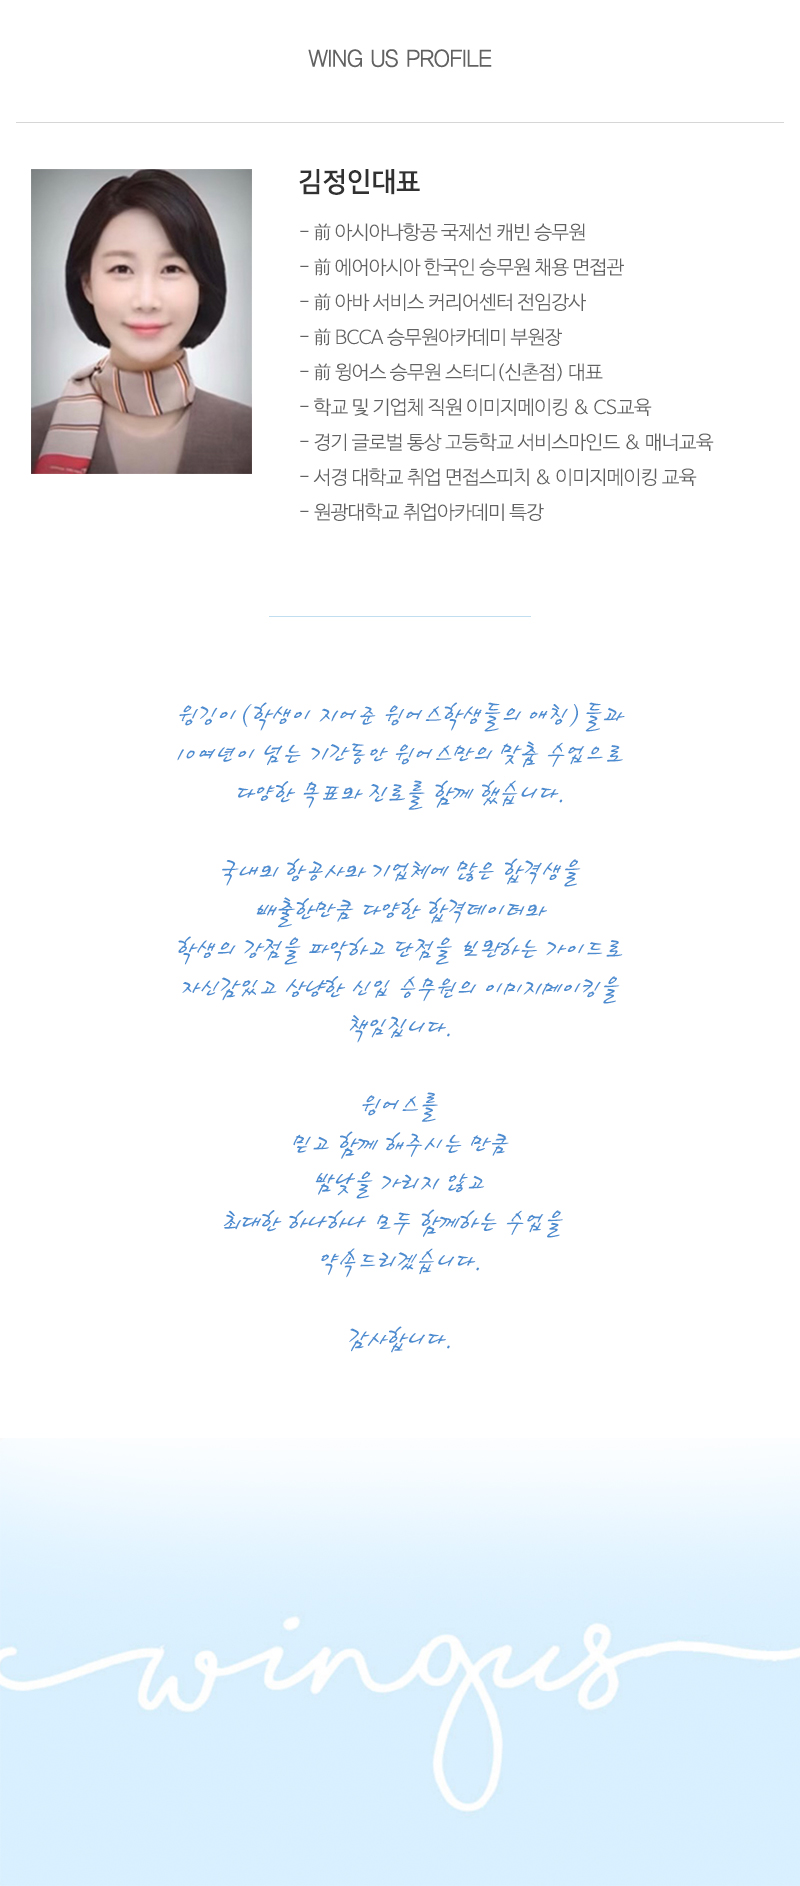 WING US PROFILE
김정인대표
- 前 아시아나항공 국제선 캐빈 승무원
- 前 에어아시아 한국인 승무원 채용 면접관
- 前 아바 서비스 커리어센터 전임강사
- 前 BCCA 승무원아카데미 부원장
- 前 윙어스 승무원 스터디(신촌점) 대표
- 학교 및 기업체 직원 이미지메이킹 & CS교육
- 경기 글로벌 통상 고등학교 서비스마인드 & 매너교육
- 서경 대학교 취업 면접스피치 & 이미지메이킹 교육
- 원광대학교 취업아카데미 특강
윙깅이 (학생이 지어준 윙어스학생들의 애칭) 들과
10여년이 넘는 기간동안 윙어스만의 맞춤 수업으로
다양한 목표와 진로를 함께 했습니다.
국내외 항공사와 기업체에 많은 합격생을
배출한만큼 다양한 합격데이터와
학생의 강점을 파악하고 단점을 보완하는 가이드로
자신감있고 상냥한 신입 승무원의 이미지메이킹을
책임집니다.
윙어스를
믿고 함께 해주시는 만큼
밤낮을 가리지 않고
최대한 하나하나 모두 함께하는 수업을
약속드리겠습니다.
감사합니다.
wingus